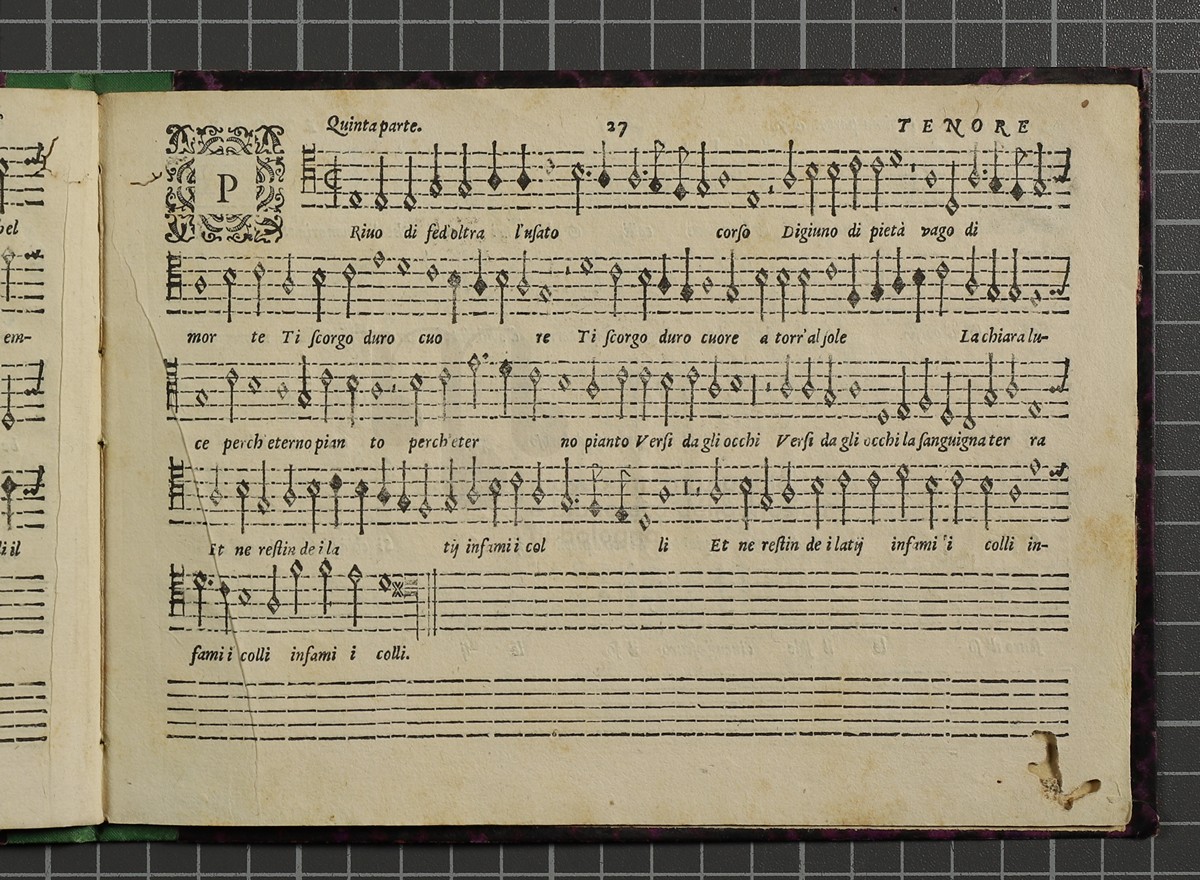 Quinta parte. 27 TENORE
P
Riuo di fed'oltra l'usato corso Digiuno di pietà vago di
mor te Ti scorgo duro cuo re Ti scorgo duro cuore a torr'al sole La chiara lu-
ce perch'eterno pian to perch'eter no pianto Versi da gli occhi Versi da gli occhi la sanguigna ter ra
Et ne restin de i la tij infami i col li Et ne restin de i latij infami i colli in-
fami i colli infami i colli.
em-